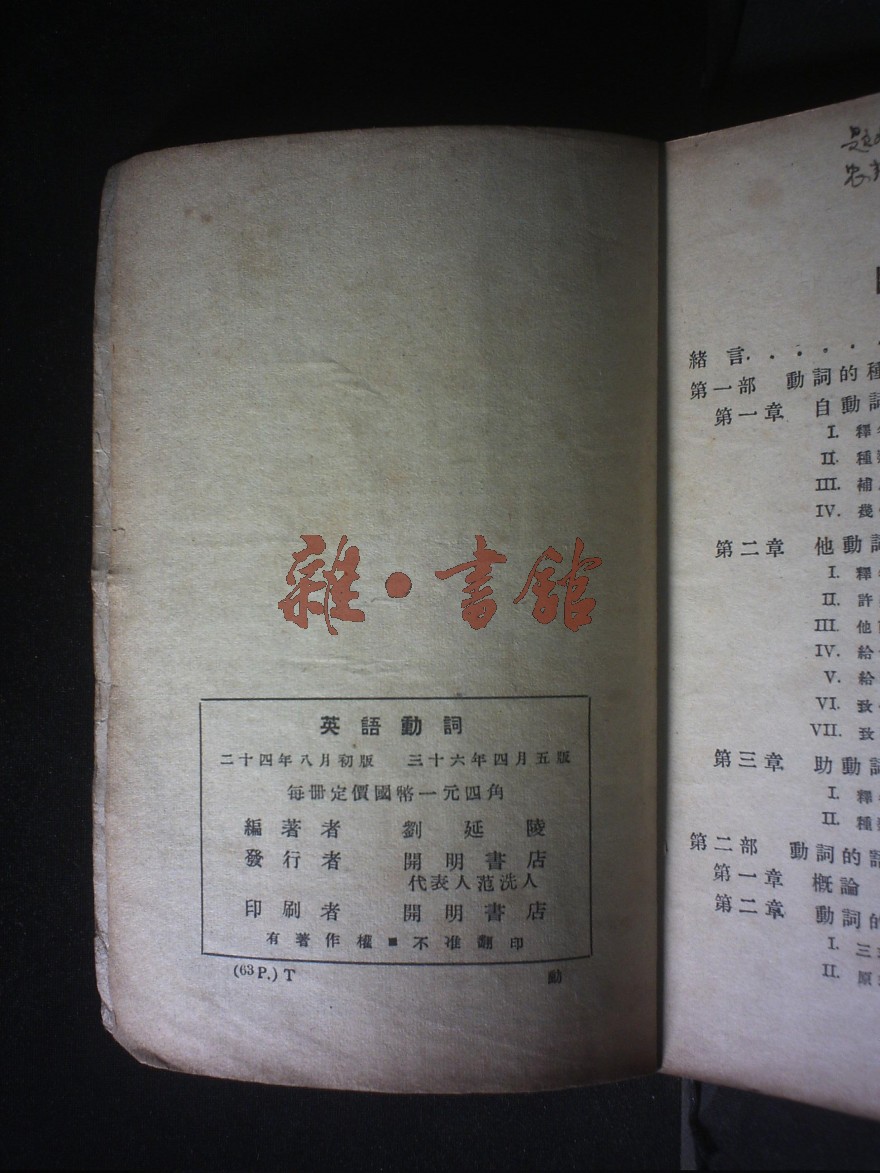 雜·書館
英語動詞
二十四年八月初版 三十六年四月五版
每冊定價國幣一元四角
編著者 劉延陵
發行者 開明書店
代表人范洗人
印刷者 開明書店
有著作權■不准翻印
(63P.)T 動
緒言.....
第一部 動詞的種
第一章 自動詞
I. 釋
II. 種
III. 補
IV. 幾
第二章 他動詞
I. 釋
II. 許
III. 他
IV. 給
V. 給
VI. 致
VII. 致
第三章 助動詞
I. 釋
II. 種
第二部 動詞的
第一章 概論
第二章 動詞的
I. 三
II. 原